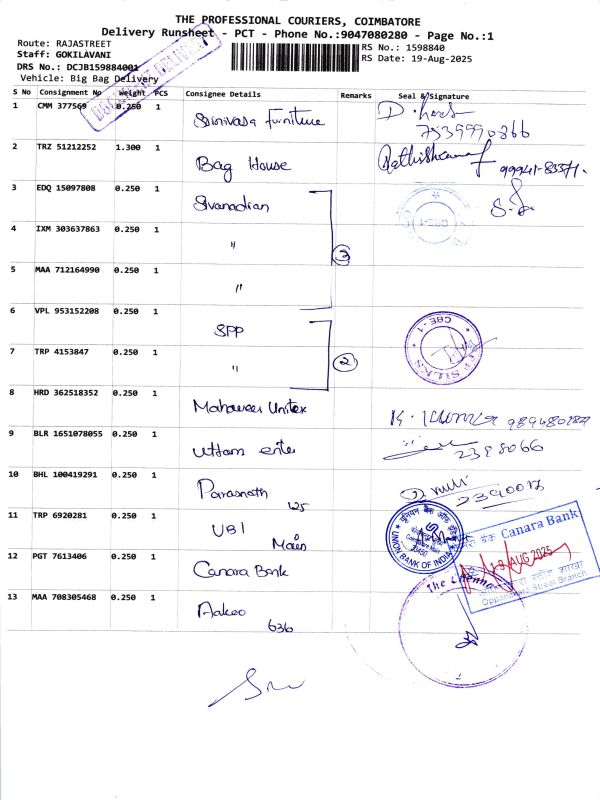 THE PROFESSIONAL COURIERS, COIMBATORE
Delivery Runsheet - PCT - Phone No.:9047080280 - Page No.:1
Route: RAJASTREET
Staff: GOKILAVANI
DRS No.: DCJB159884001
Vehicle: Big Bag Delivery
RS No.: 1598840
RS Date: 19-Aug-2025
S No Consignment No Weight PCS Consignee Details Remarks Seal & Signature
1 CMM 377569 0.250 1 Srinivasa Furniture
7539990866
2 TRZ 51212252 1.300 1 Bag House 99941-83371.
3 EDQ 15097808 0.250 1 Sivanadian
4 IXM 303637863 0.250 1 "
3
5 MAA 712164990 0.250 1 "
6 VPL 953152208 0.250 1 SPP CBE-1
7 TRP 4153847 0.250 1 " 2
8 HRD 362518352 0.250 1 Mahaveer Unitex
9 BLR 1651078055 0.250 1 Uttam enter 2398066
10 BHL 100419291 0.250 1 Parasnath 2390017
125
11 TRP 6920281 0.250 1 UBI Main
UNION BANK OF INDIA
12 PGT 7613406 0.250 1 Canara Bank
Canara Bank
19 AUG 2025
Oppanakara Street Branch
13 MAA 708305468 0.250 1
636
The Chennai